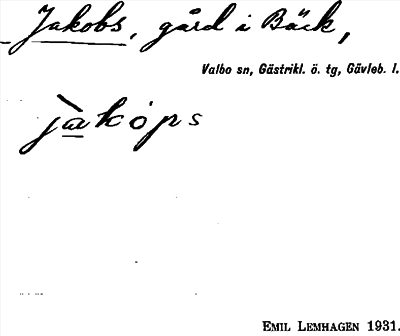 Jakobs, gård i Bäck,
Valbo sn, Gästrikl. ö. tg, Gävleb. l.
jàkops
EMIL LEMHAGEN 1931.